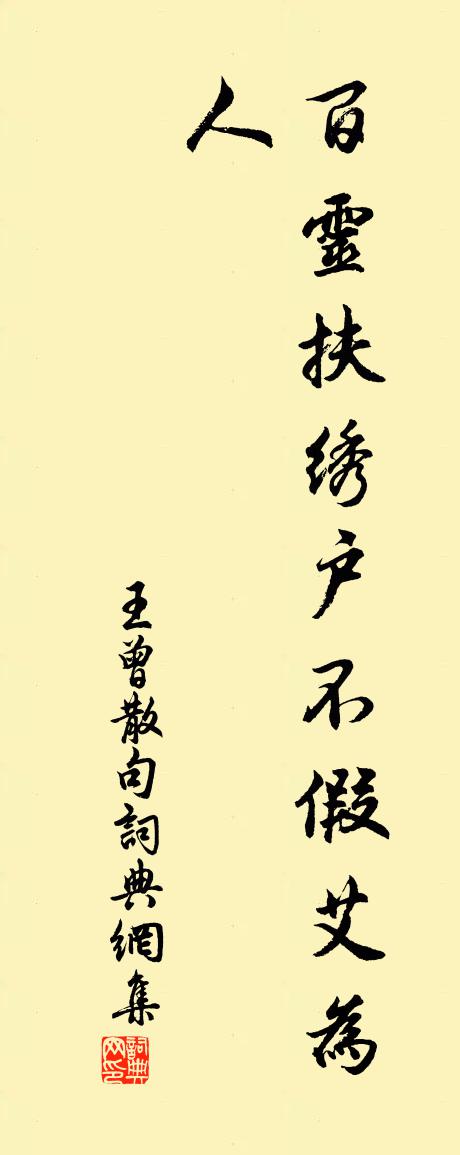 百靈扶绣户不假艾為
人
王曾散句詞典網集
詞典
网印